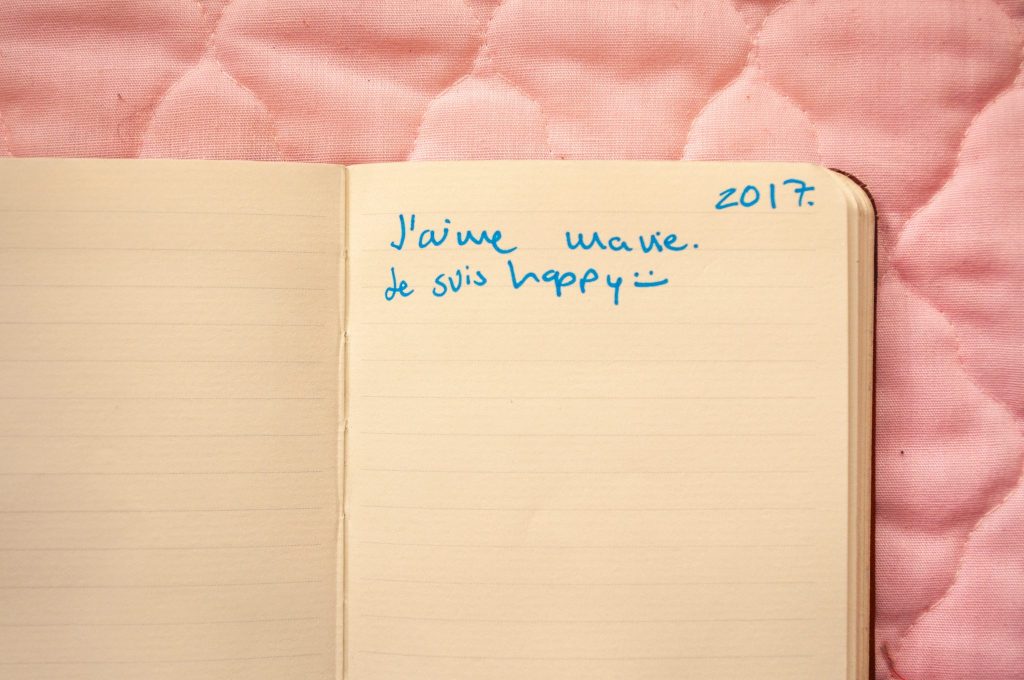 2017.
J'aime ma vie.
Je suis happy :)